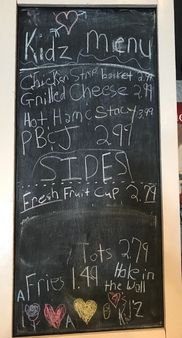 Kidz Menu
Chicken Strip basket 2.99
Grilled Cheese 2.99
Hot Ham & Stacy 3.99
PB&J 2.99
SIDES
Fresh Fruit Cup 2.79
Tots 2.79
Fries 1.49 Hole in
the wall
A
A Kidz